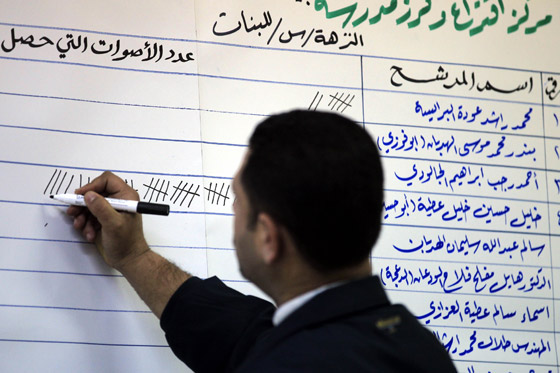 مركز اقتراع وفرز مدرسة
النزهة/س/للبنات
عدد الأصوات التي حصل
اسم المرشح
محمد راشد عودة البرايسة
بندر محمد موسى الهديان (ابو فوزي)
احمد رجب ابراهيم الجالودي
خليل حسين خليل عطية (ابو حسين
سالم عبدالله سليمان الهدبان
الدكتور هايل مفلح فلاح
اسماء سالم عطية العزازي
المهندس طلال محمد